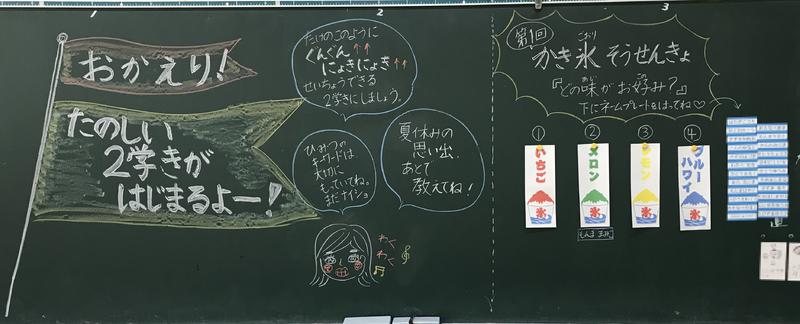 1
おかえり!
たのしい
2学きが
はじまるよー!
2
たけのこのように
ぐんぐん↑↑
にょきにょき↑↑
せいちょうできる
2学きにしましょう。
ひみつの
キーワードは
大切に
もっていてね。
まだナイショ
夏休みの
思い出、
あとで
教えてね!
わく
わく
3
第1回
かき氷 そうせんきょ
こおり
『どの味がお好み?』
あじ
この
下にネームプレートをはってね♡
①
いちご
氷
②
メロン
氷
③
レモン
氷
④
ブルー
ハワイ
氷